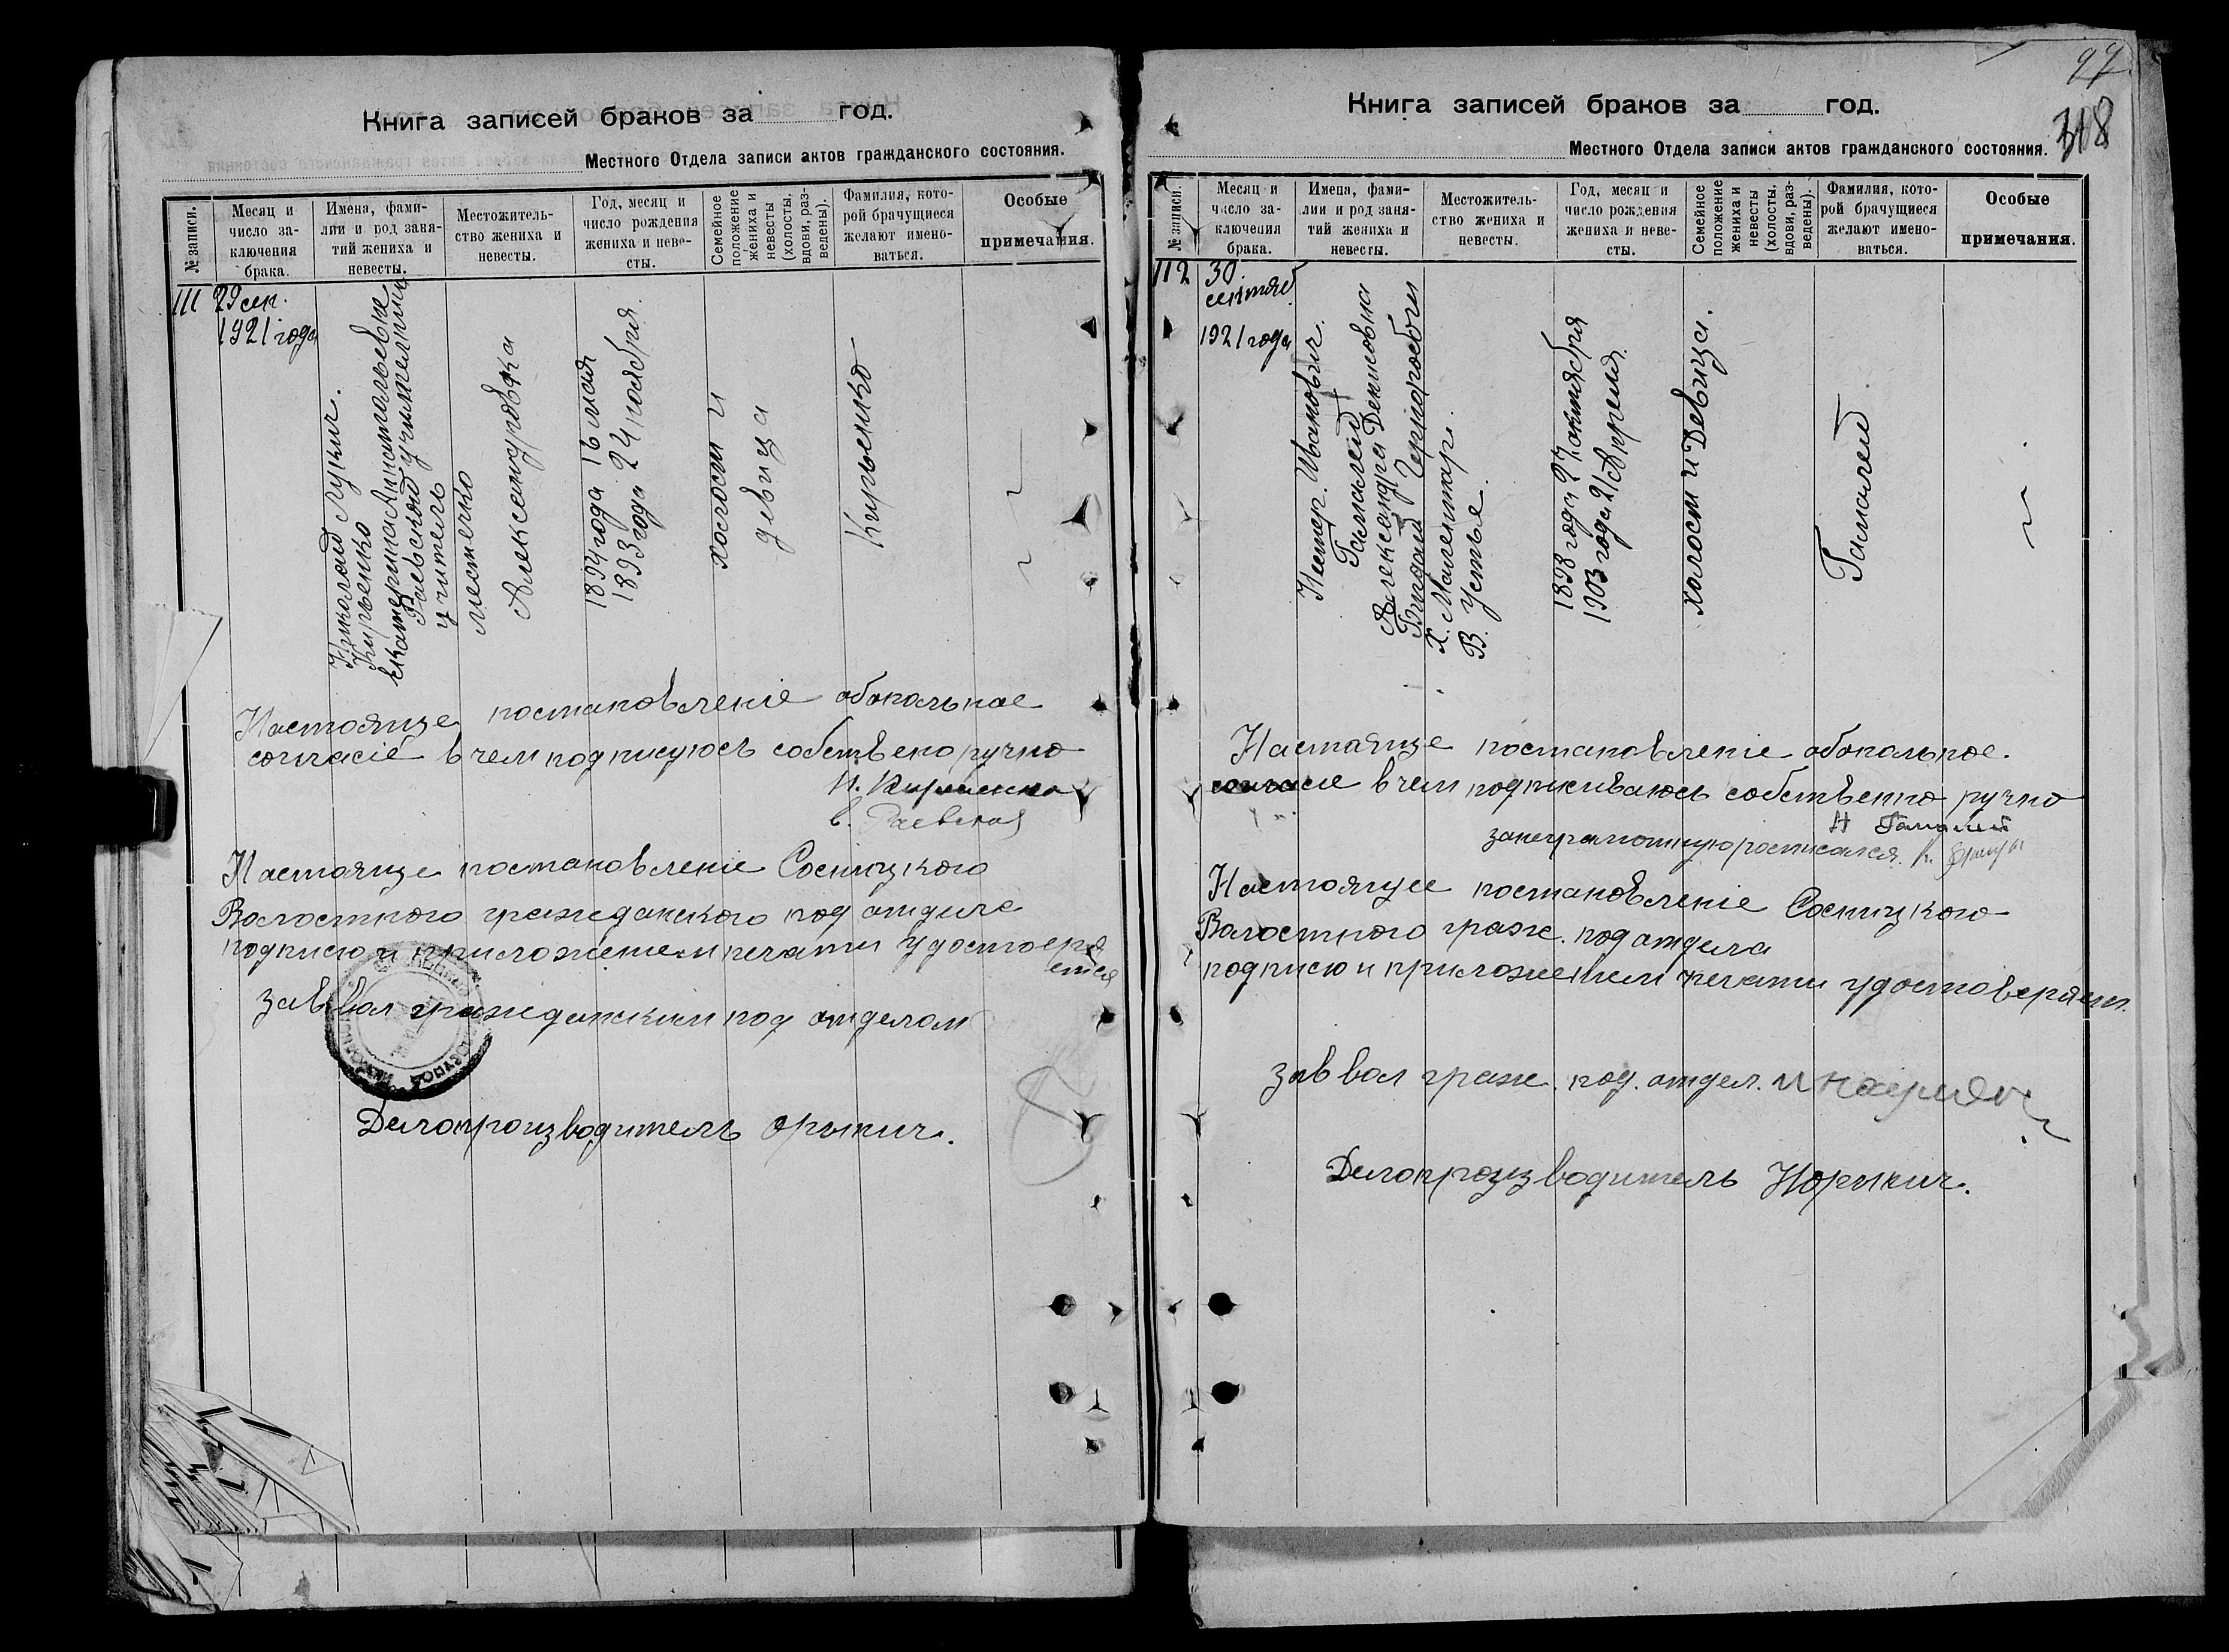 Книга записей браков за год.
Местного Отдела записи актов гражданского состояния.
№ записи.
Месяц и
число за-
ключения
брака.
Имена, фами-
лии и род заня-
тий жениха и
невесты.
Местожитель-
ство жениха и
невесты.
Год, месяц и
число рождения
жениха и неве-
сты.
Семейное
положение
жениха и
невесты
(холосты,
вдовы, раз-
ведены).
Фамилия, кото-
рой брачущиеся
желают имено-
ваться.
Особые
примечания.
111
29 сен.
1921 года
Николай Лукич.
Кирьенко
Екатерина Анатольевна
Раевской учительница
учитель
местечко
Александровка
1894 года 16 мая
1893 года 24 ноября.
холост и
девица
Кирьенко
Настояще постановленіе обопольное
согласіе в чем подписуюсь собственоручно
Н. Кирьенко
Е. Раевская
Настояще постановленіе Сосницкого
Волостного гражданского под отдела
подписю и приложением печати удостоверя
ется
зав вол гражданским под отделом
Делопроизводитель
Книга записей браков за год.
97
318
Местного Отдела записи актов гражданского состояния.
№ записи.
Месяц и
число за-
ключения
брака.
Имена, фами-
лии и род заня-
тий жениха и
невесты.
Местожитель-
ство жениха и
невесты.
Год, месяц и
число рождения
жениха и неве-
сты.
Семейное
положение
жениха и
невесты
(холосты,
вдовы, раз-
ведены).
Фамилия, кото-
рой брачущиеся
желают имено-
ваться.
Особые
примечания.
112
30.
сентяб.
1921 года
Нестер Иванович.
Гамалей
Александра Денисовна
Бигдай Черноробочи
х. Малентар.
В. Устье.
1898 года 27 октября
1903 года 21 Апреля.
холост и Девица.
Гамалей
Настояще постановленіе обопольное.
согласие в чем подписиваюсь собственно ручно
Н Гамалей
занеграмотную росписался.
Настоящее постановленіе Сосницкого
Волостного граж. под отдела
подписю и приложением печати удостоверяется.
зав вол граж. под. отдел.
Делопроизводитель